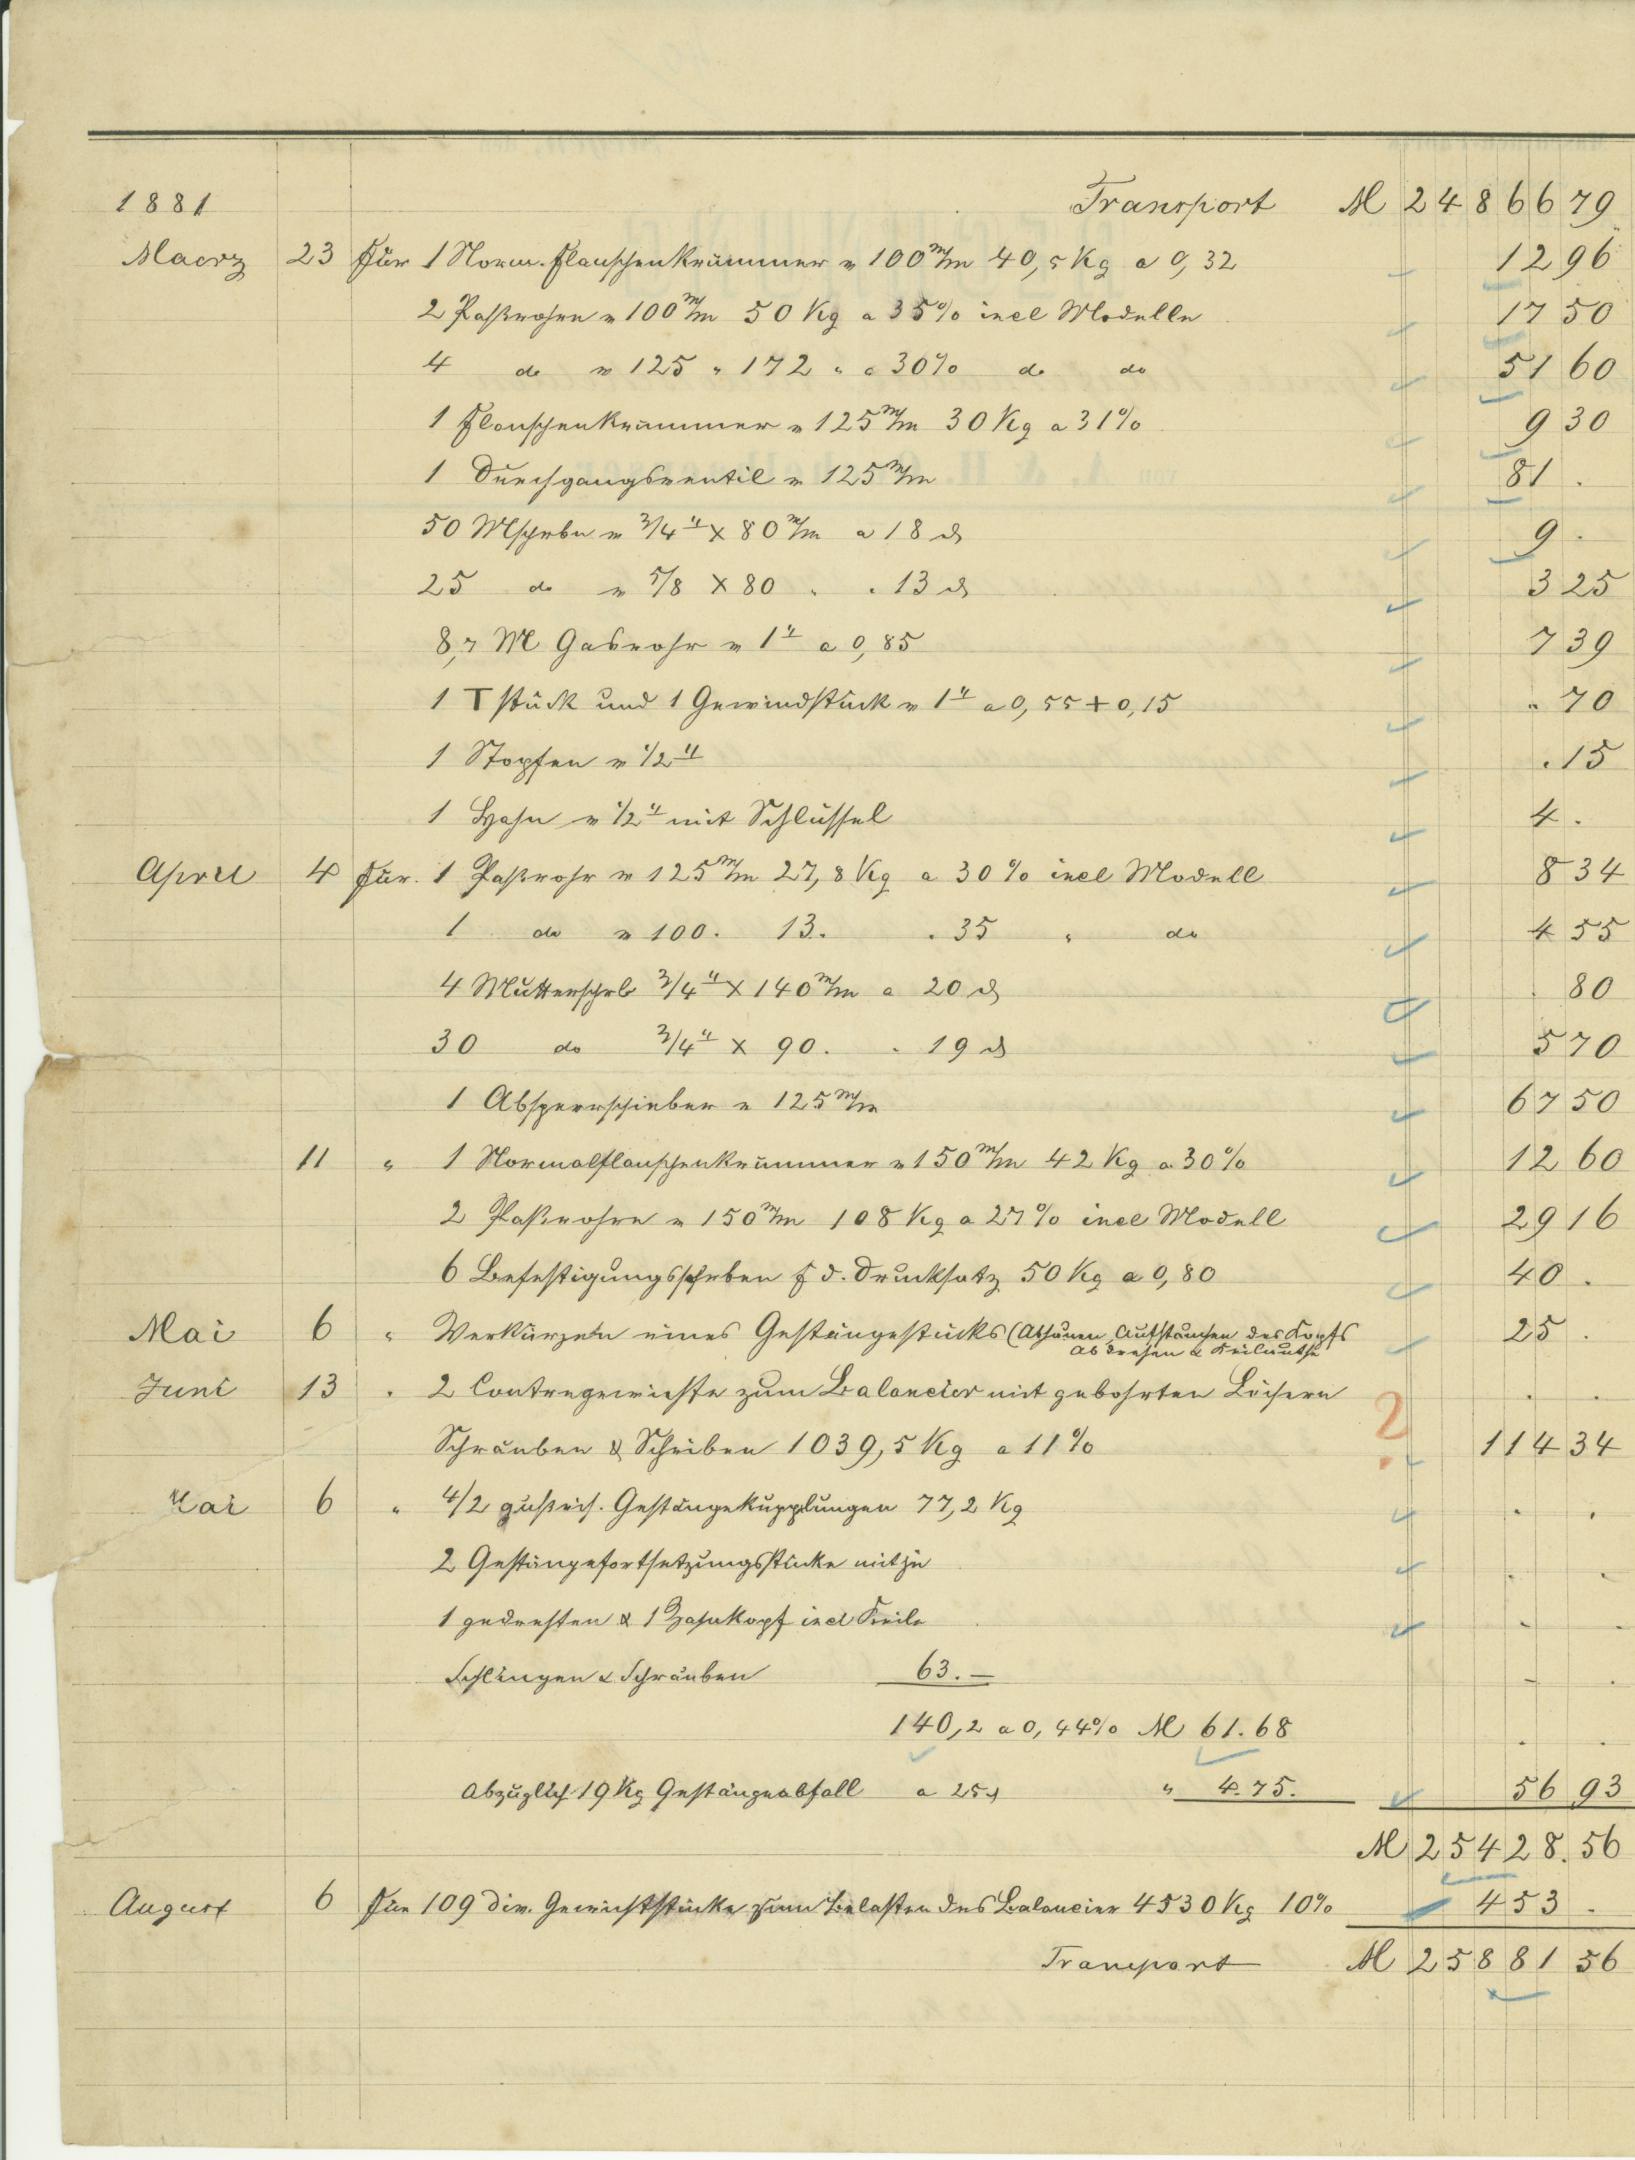 1881 Transport M 24866 79
Maerz 23 Für 1 Norm. Flanschenkrümmer v 100 m/m 40,5 Kg a 0,32 12 96
2 Paßrohre v 100 m/m 50 Kg a 35% incl Modelle 17 50
4 do v 125 " 172 " a 30% do do 51 60
1 Flanschenkrümmer v 125 m/m 30 Kg a 31% 9 30
1 Durchgangsventil v 125 m/m 81 .
50 Mschrbn v 3/4" X 80 m/m a 18 ₰ 9 .
25 do v 5/8 X 80 " . 13 ₰ 3 25
8,7 M Gasrohr v 1" a 0,85 7 39
1 T stück und 1 Gewindstück v 1" a 0,55 + 0,15 " 70
1 Stopfen v 1/2" . 15
1 Hahn v 1/2" mit Schlüssel 4 .
April 4 Für 1 Paßrohr v 125 m/m 27,8 Kg a 30% incl Modell 8 34
1 do v 100 . 13 . . 35 " do 4 55
4 Mutterschrb 3/4" X 140 m/m a 20 ₰ . 80
30 do 3/4" X 90 . . 19 ₰ 5 70
1 Absperrschieber v 125 m/m 67 50
11 " 1 Normalflanschenkrümmer v 150 m/m 42 Kg a 30% 12 60
2 Paßrohre v 150 m/m 108 Kg a 27% incl Modell 29 16
6 Befestigungsschrben f d. Drucksatz 50 Kg a 0,80 40 .
Mai 6 " Verkürzen eines Gestängestücks (Abhauen, Aufstauchen des Kopfs 25 .
Abdrehen & Keilnuthe
Juni 13 . 2 Contregewichte zum Balancier mit gebohrten Löchern . .
Schrauben & Scheiben 1039,5 Kg a 11% ? 114 34
Mai 6 " 4/2 gußeis. Gestängekupplungen 77,2 Kg . .
2 Gestängefortsetzungsstücke mit je . .
1 gedrehten & 1 Zahnkopf incl Keile - .
Schlingen & Schrauben 63.— - .
140,2 a 0,44% M 61.68 . .
Abzüglich 19 Kg Gestängeabfall a 25 ₰ " 4.75. 56 93
M 25428.56
August 6 Für 109 div. Gewichtstücke zum Belasten des Balancier 4530 Kg 10% 453 .
Transport M 25881 56